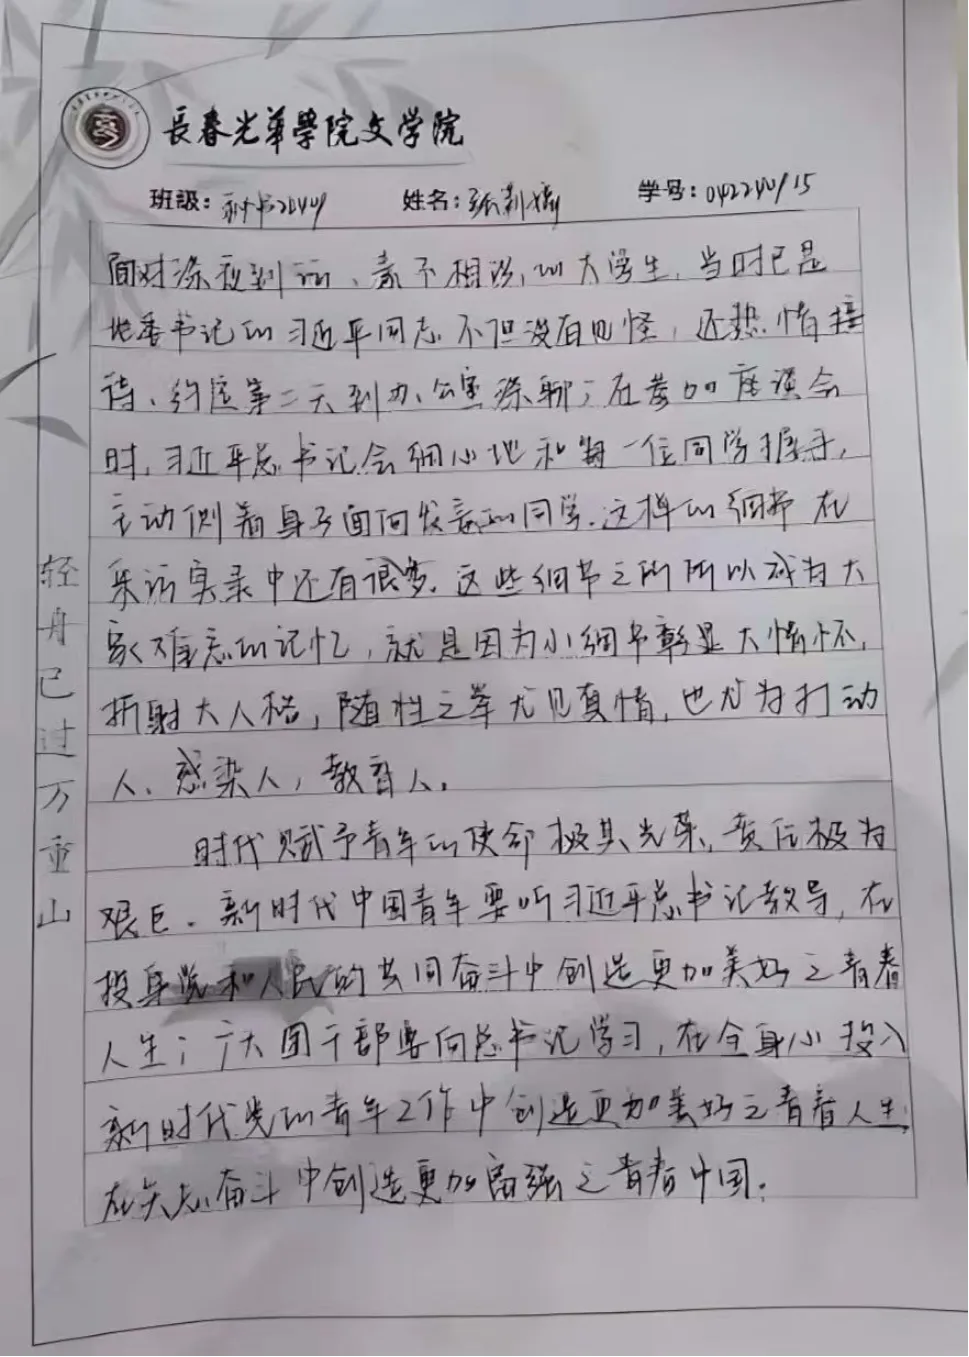 長春光華學院文学院
班級: 姓名: 学号: 042240115
面对深夜到访、素不相识的大学生，当时已是
地委书记的习近平同志不但没有见怪，还热情接
待、约定第二天到办公室深聊；在参加座谈会
时，习近平总书记会细心地和每一位同学握手，
主动侧着身子面向发言的同学。这样的细节在
采访实录中还有很多。这些细节之所所以成为大
家难忘的记忆，就是因为小细节彰显大情怀，
折射大人格，随性之举尤见真情，也尤为打动
人、感染人，教育人。
时代赋予青年的使命极其光荣，责任极为
艰巨。新时代中国青年要听习近平总书记教导，在
投身党和人民的共同奋斗中创造更加美好之青春
人生；广大团干部要向总书记学习，在全身心投入
新时代党的青年工作中创造更加美好之青春人生，
在矢志奋斗中创造更加富强之青春中国。
轻舟已过万重山